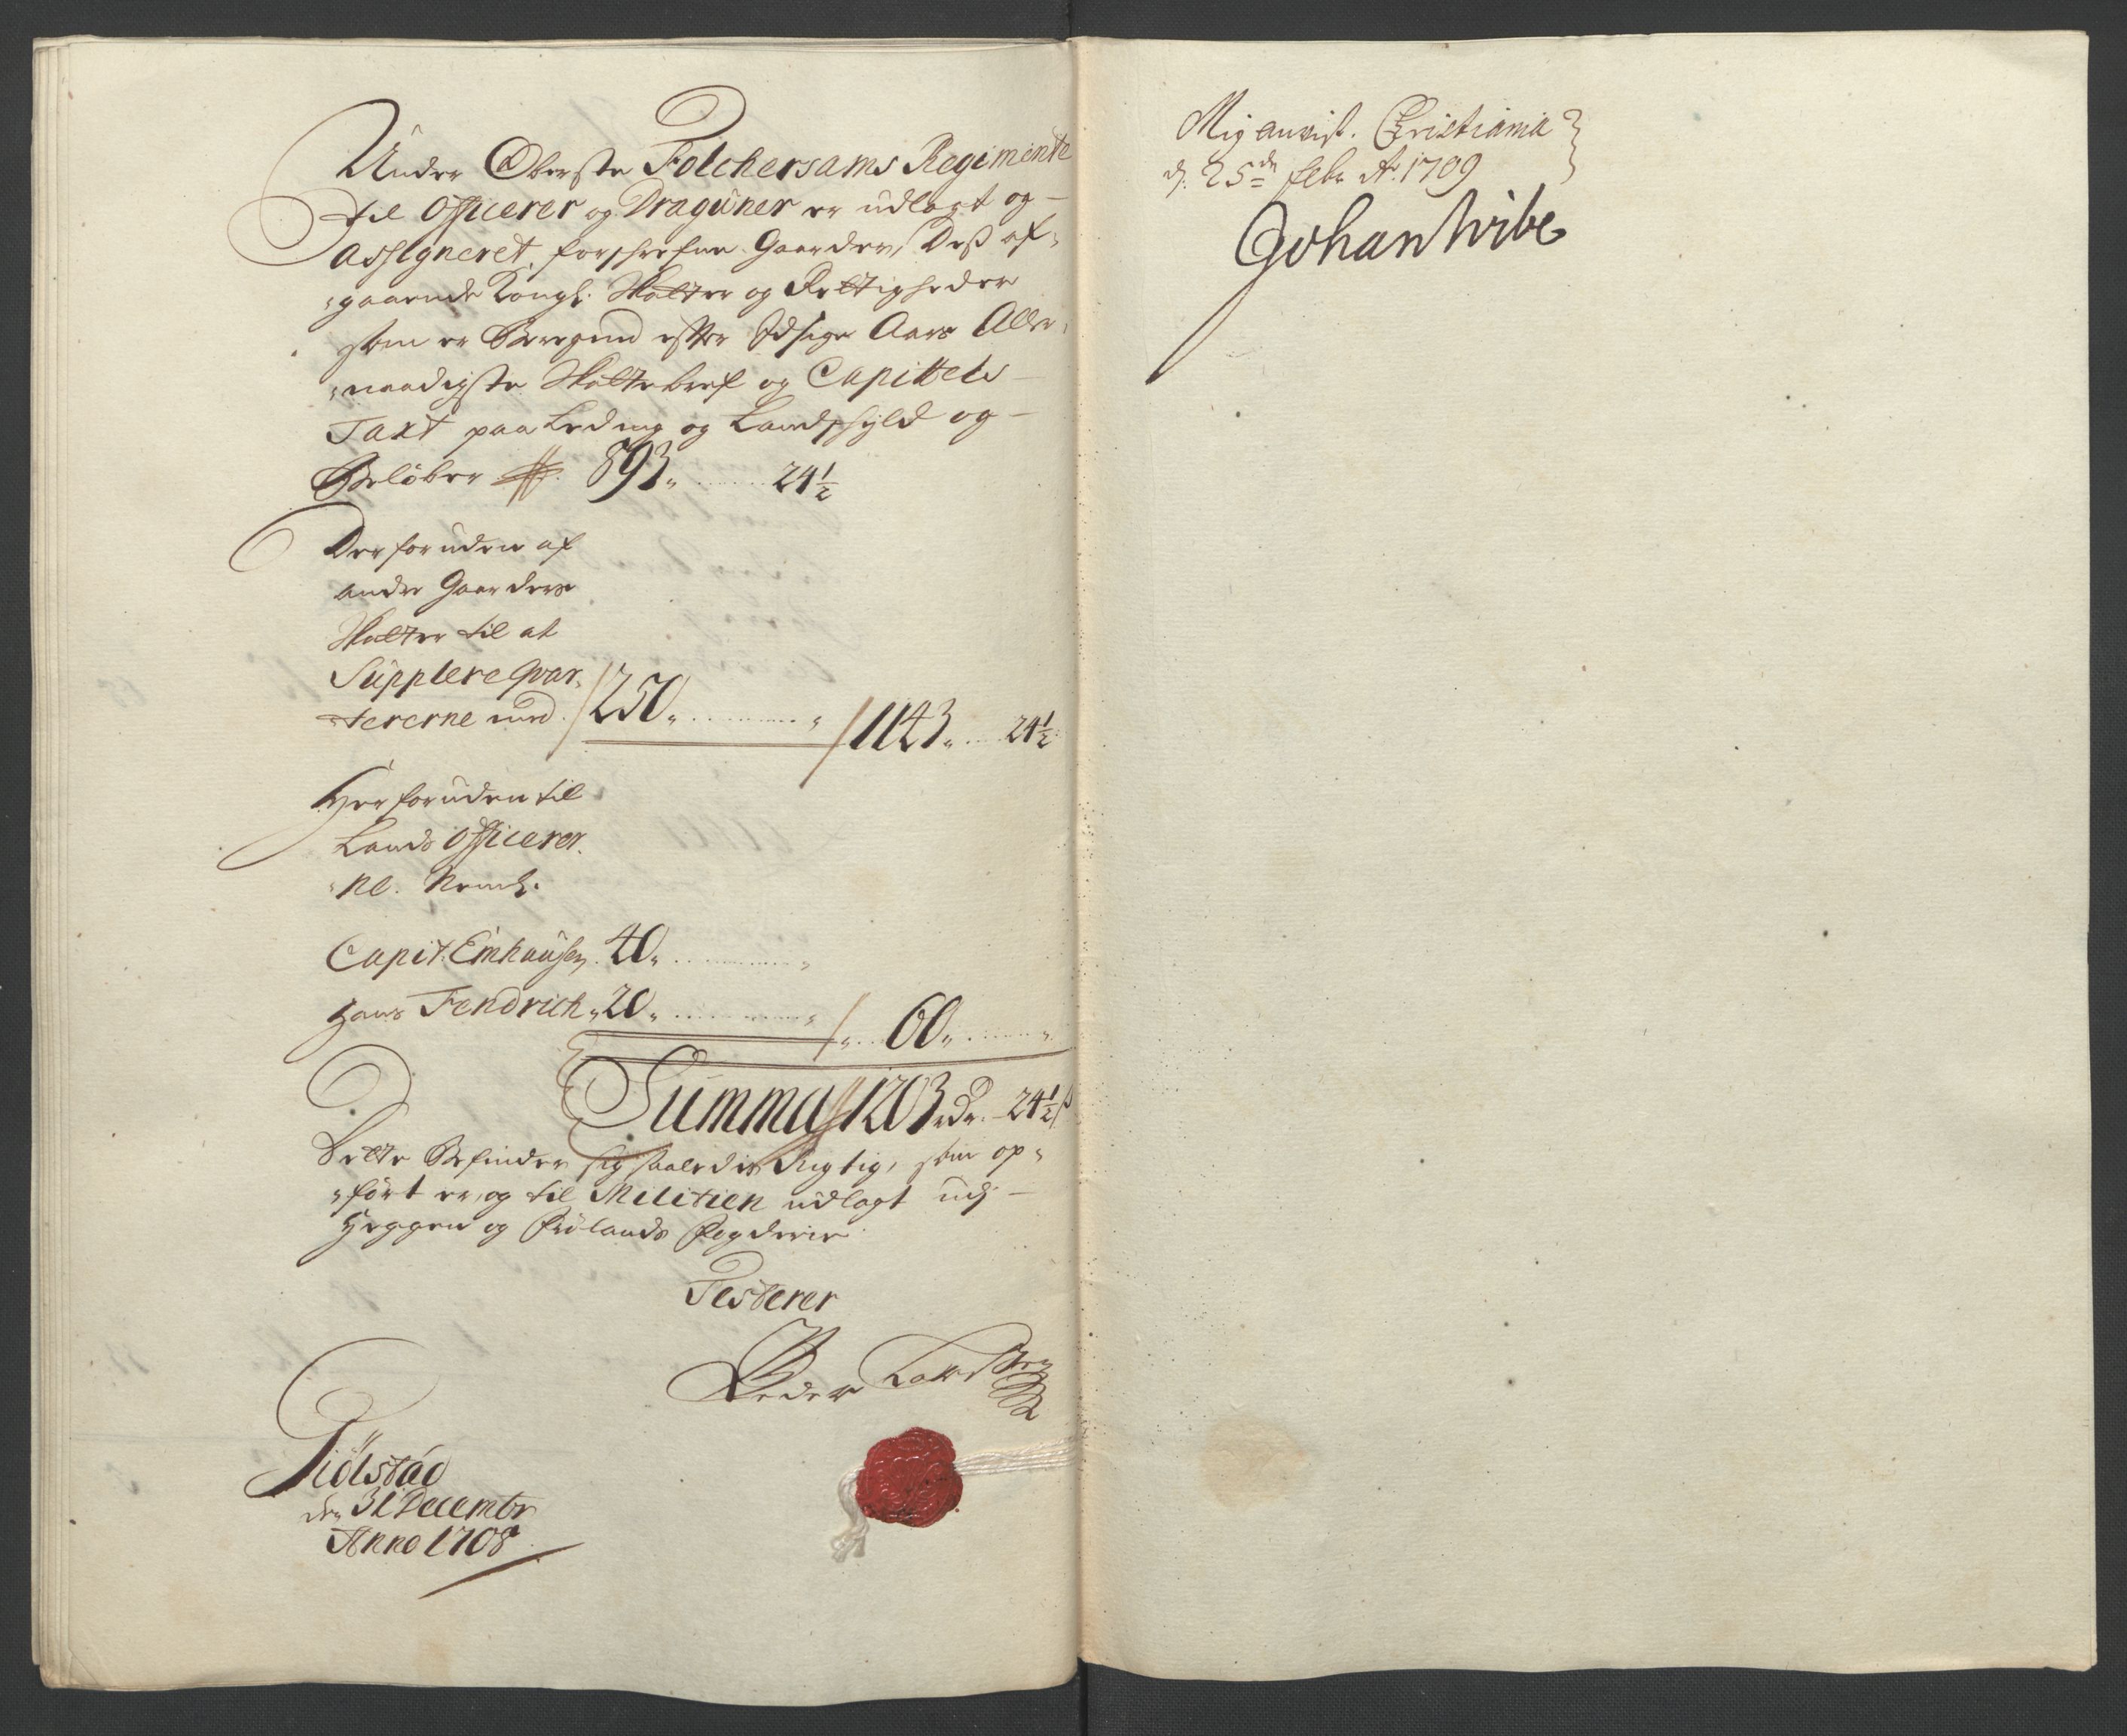 Under Oberste Folchersams Regimente
til Officerer og Dragüner er udlagt og –
assigneret forschrefne Gaarder, Deß af„
„gaaende Kongl: Skatter og Rettigheder
som er Beregnet efter Aars Aller„
„naadigste Skattebref og Capittels –
Taxt paa Leding og Landschyld og –
Beløber 893„ 24½
Der foruden af
andre Gaarders
Skatter til at
Supplere Qvar„
„tererne med 250„ „ 1143„ 24½
Her foruden til
Lands Officerer„
„ne. Neml:
Capit: Emhausen 40„ „
Hans Fendrich „20„ „ 60„ „
Summa 1203 rdr. 24½ ß
Dette Befindes sig saaledis Rigtig, som op„
„ført er, og til Militien udlagt udj –
Heggen og Frølands Fogderie
Testerer
Peder
den 31 Decembr
Anno 1708
Mig anvist. Christiania
d: 25de febr Ao. 1709
Johan Wibe